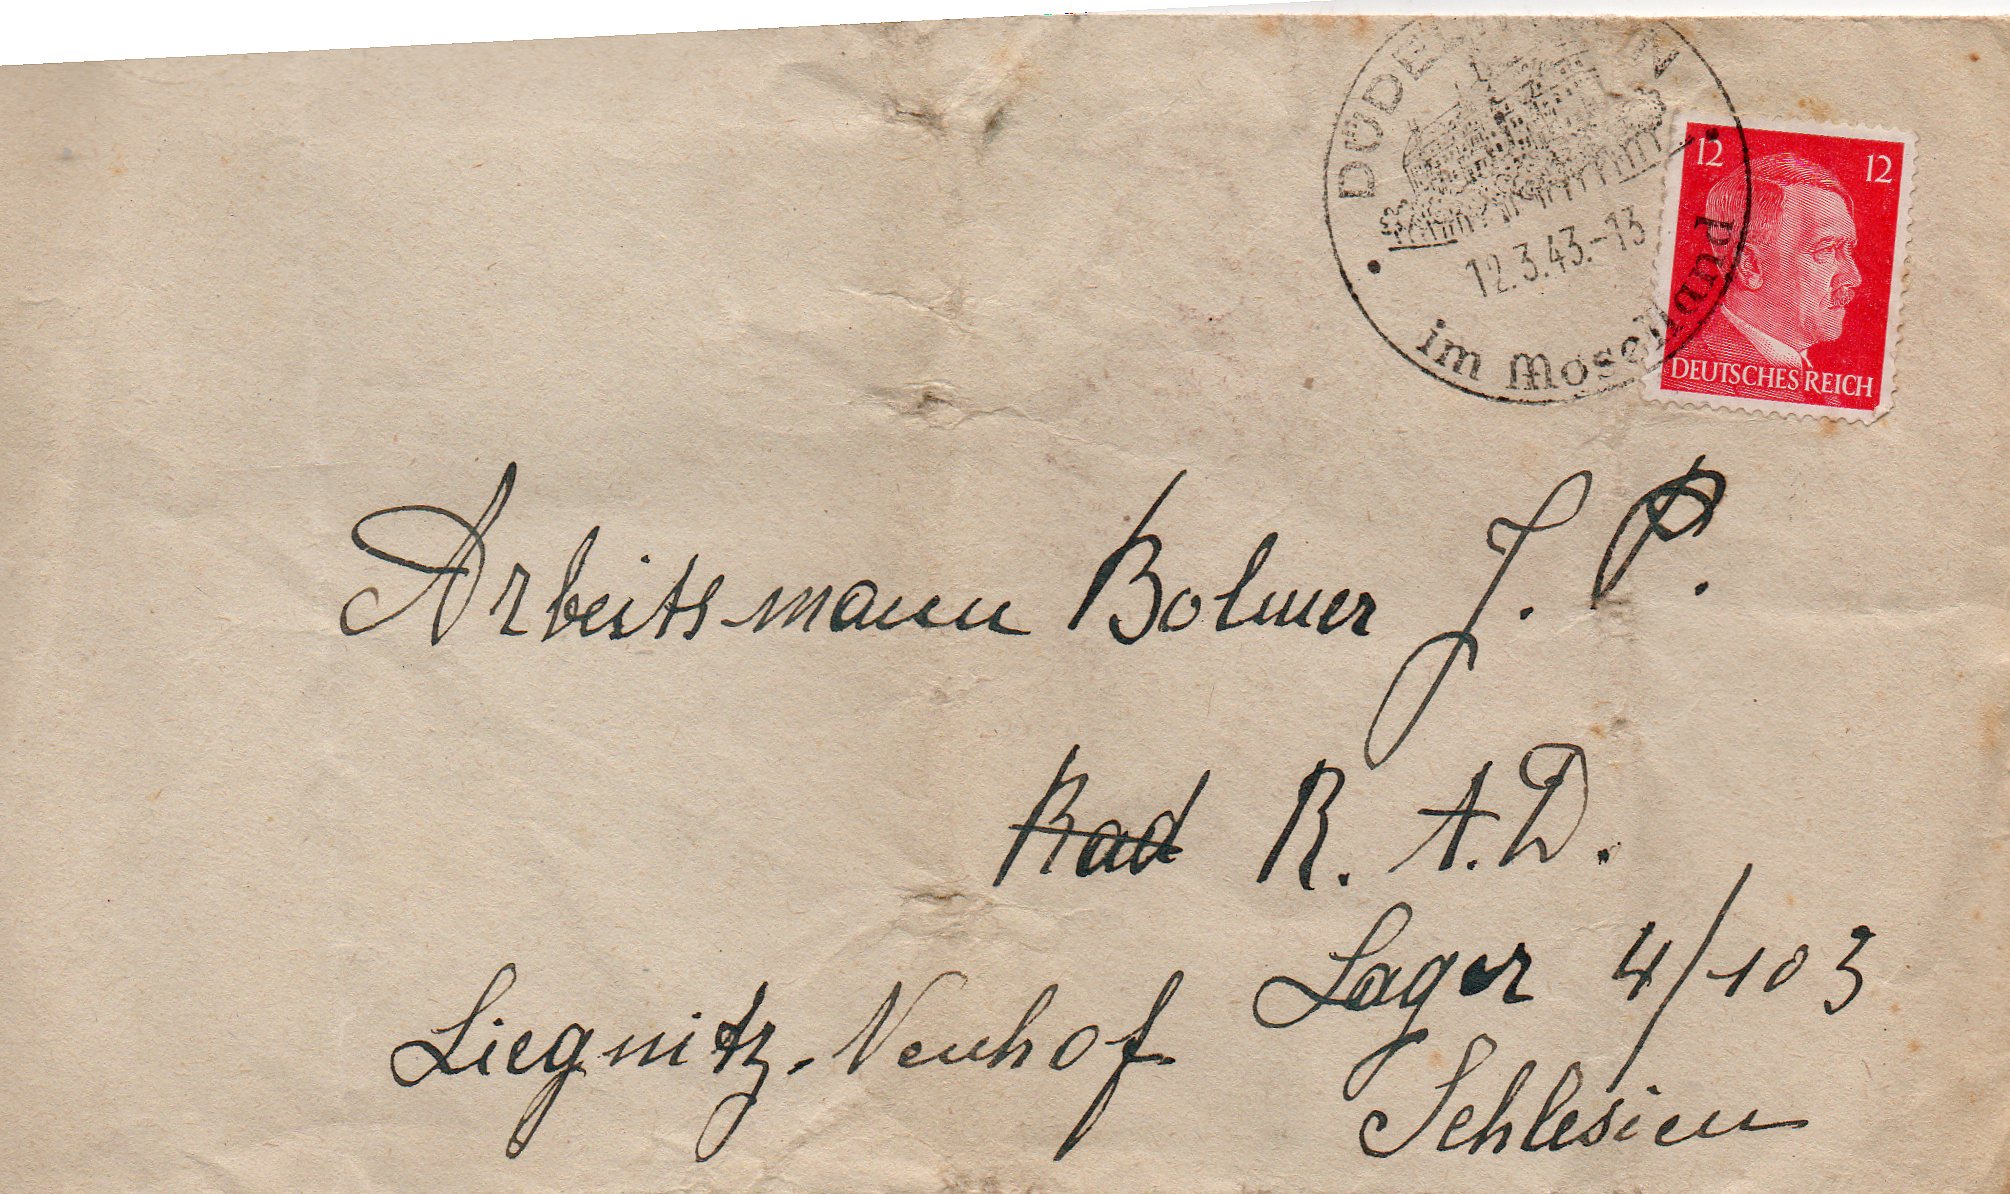 DÜDELINGEN
12.3.43.-13
im Moselland
12 12
DEUTSCHES REICH
Arbeitsmann Bolmer J. P.
Rad R. A. D.
Lager 4/103
Liegnitz-Neuhof
Schlesien